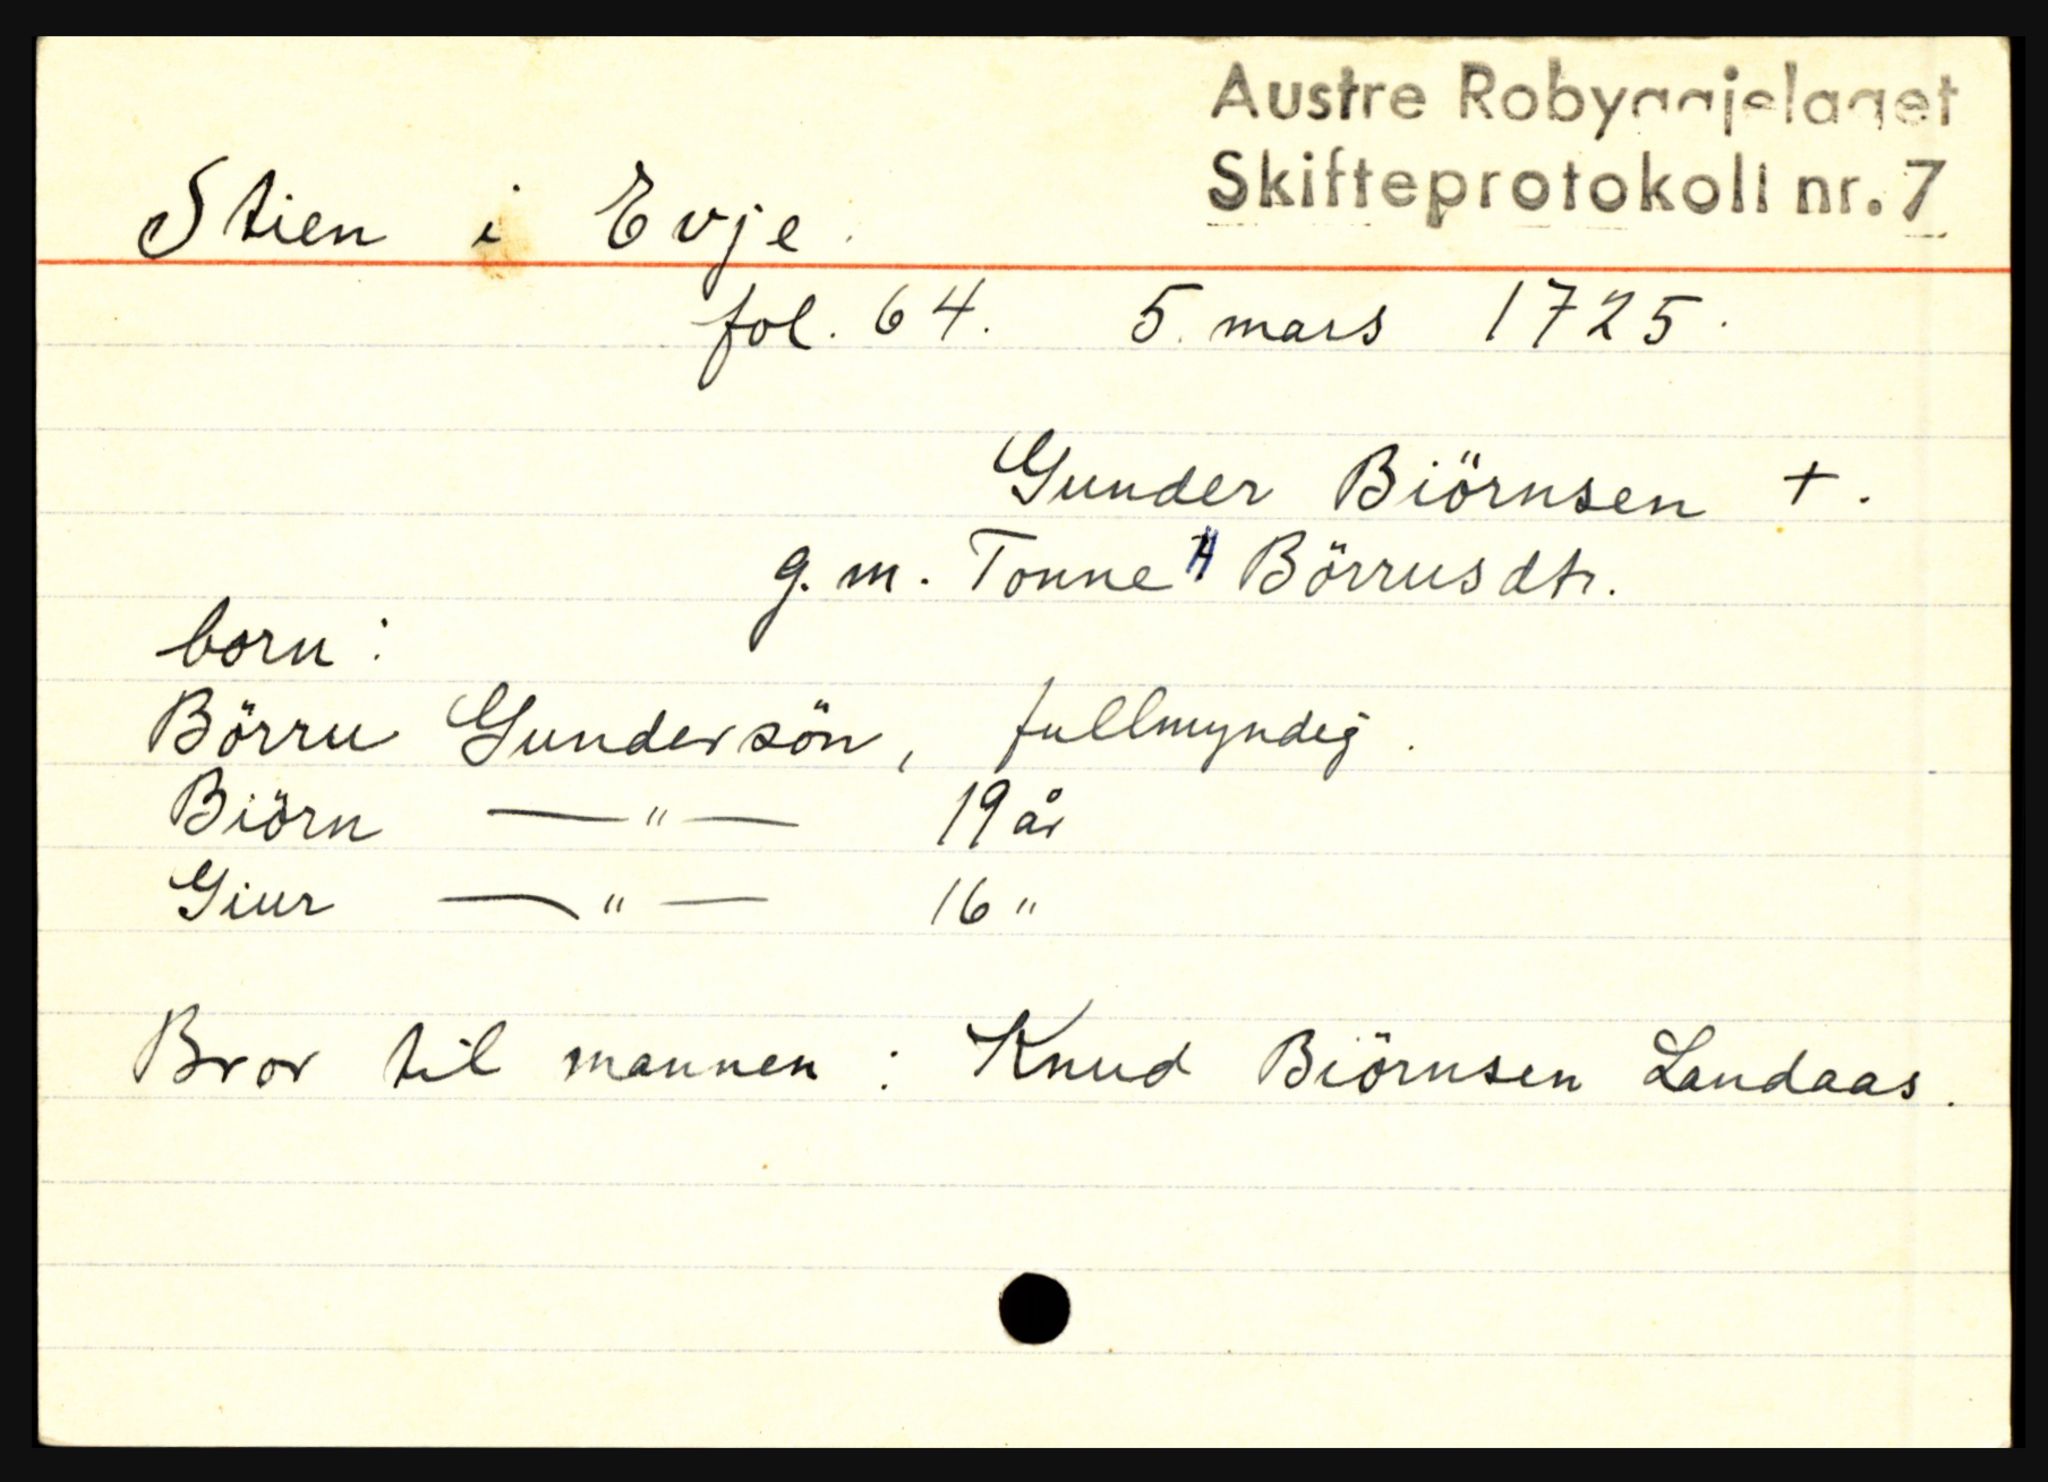 Austre Robyggjelaget
Skifteprotokoll nr. 7
Stien i Evje.
fol. 64. 5. mars 1725.
Gunder Biörnsen +.
g. m. Tonne Börrusdtr.
born:
Börru Gundersön, fullmyndig.
Biörn —"— 19 år
Giur —"— 16 "
Bror til mannen: Knud Biörnsen Landaas.